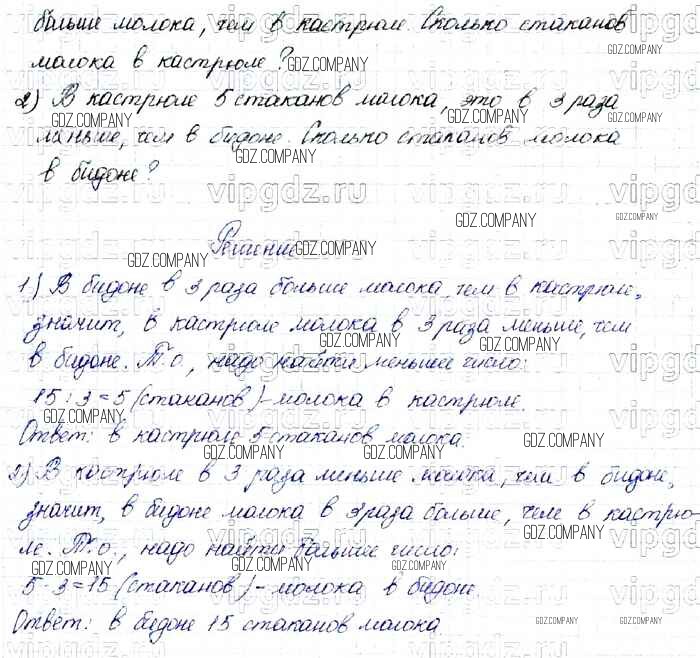 больше молока, чем в кастрюле. Сколько стаканов
молока в кастрюле?
2) В кастрюле 5 стаканов молока, это в 3 раза
меньше, чем в бидоне. Сколько стаканов молока
в бидоне?
Решение
1) В бидоне в 3 раза больше молока, чем в кастрюле,
значит, в кастрюле молока в 3 раза меньше, чем
в бидоне. Т.о., надо найти меньшее число:
15 : 3 = 5 (стаканов) - молока в кастрюле.
Ответ: в кастрюле 5 стаканов молока.
2) В кастрюле в 3 раза меньше молока, чем в бидоне,
значит, в бидоне молока в 3 раза больше, чем в кастрю-
ле. Т.о., надо найти большее число:
5 · 3 = 15 (стаканов) - молока в бидоне.
Ответ: в бидоне 15 стаканов молока.